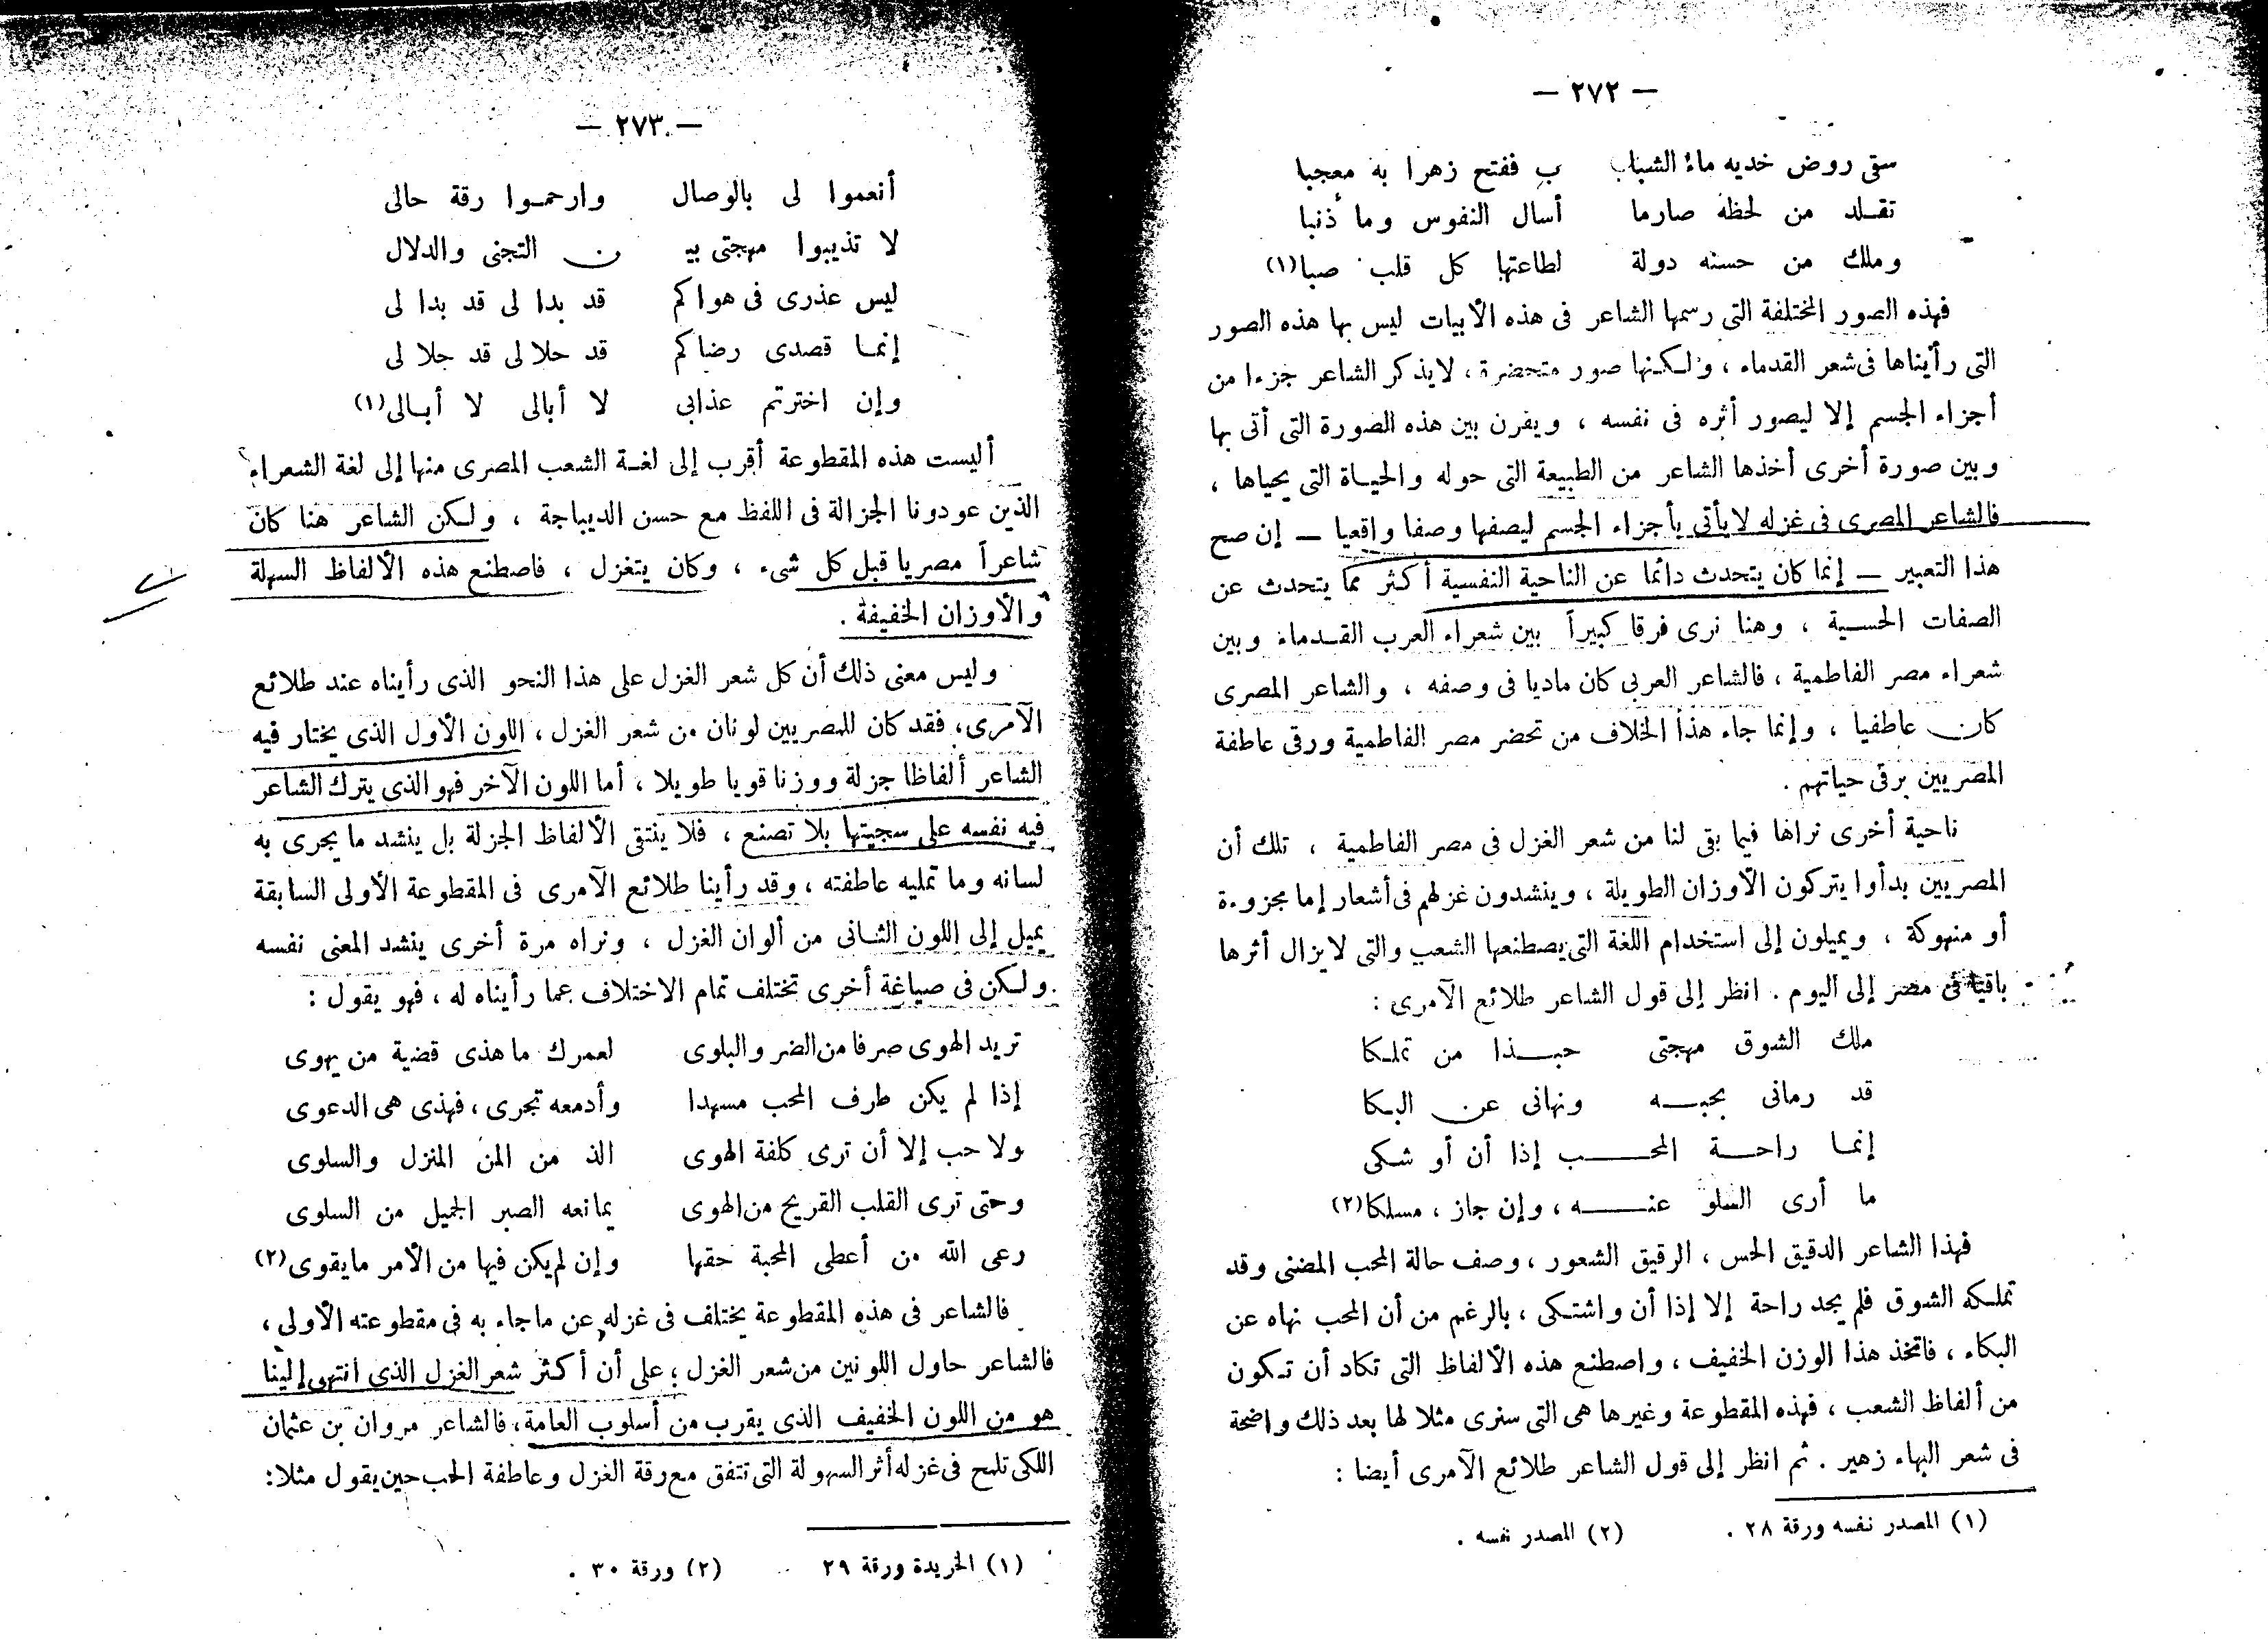 — ٢٧٢ —
سقى روض خديه ماء الشباب ب ففتح زهرا به معجبا
تقلد من لحظه صارما أسال النفوس وما أذنبا
وملك من حسنه دولة لطاعتها كل قلب صبا(١)
فهذه الصور المختلفة التى رسمها الشاعر فى هذه الأبيات ليس بها هذه الصور
التى رأيناها فى شعر القدماء ، ولكنها صور متحضرة ، لايذكر الشاعر جزءا من
أجزاء الجسم إلا ليصور أثره فى نفسه ، ويقرن بين هذه الصورة التى أتى بها
وبين صورة أخرى أخذها الشاعر من الطبيعة التى حوله والحياة التى يحياها ،
فالشاعر المصرى فى غزله لايأتى بأجزاء الجسم ليصفها وصفا واقعيا — إن صح
هذا التعبير — إنما كان يتحدث دائما عن الناحية النفسية أكثر مما يتحدث عن
الصفات الحسية ، وهنا نرى فرقا كبيراً بين شعراء العرب القدماء وبين
شعراء مصر الفاطمية ، فالشاعر العربى كان ماديا فى وصفه ، والشاعر المصرى
كان عاطفيا ، وإنما جاء هذا الخلاف من تحضر مصر الفاطمية ورقى عاطفة
المصريين برقى حياتهم .
ناحية أخرى نراها فيما بقى لنا من شعر الغزل فى مصر الفاطمية ، تلك أن
المصريين بدأوا يتركون الأوزان الطويلة ، وينشدون غزلهم فى أشعار إما مجزوءة
أو منهوكة ، ويميلون إلى استخدام اللغة التى يصطنعها الشعب والتى لايزال أثرها
باقيا فى مصر إلى اليوم . انظر إلى قول الشاعر طلائع الآمرى :
ملك الشوق مهجتى حبذا من تملكا
قد رمانى بحبه ونهانى عن البكا
إنما راحة المحب إذا أن أو شكى
ما أرى السلو عنه ، وإن جاز ، مسلكا(٢)
فهذا الشاعر الدقيق الحس ، الرقيق الشعور ، وصف حالة المحب المضنى وقد
تملكه الشوق فلم يجد راحة إلا إذا أن واشتكى ، بالرغم من أن المحب نهاه عن
البكاء ، فاتخذ هذا الوزن الخفيف ، واصطنع هذه الألفاظ التى تكاد أن تكون
من ألفاظ الشعب ، فهذه المقطوعة وغيرها هى التى سنرى مثلا لها بعد ذلك واضحة
فى شعر البهاء زهير . ثم انظر إلى قول الشاعر طلائع الآمرى أيضا :
(١) المصدر نفسه ورقة ٢٨ . (٢) المصدر نفسه .
— ٢٧٣ —
أنعموا لى بالوصال وارحموا رقة حالى
لا تذيبوا مهجتى بيـ ـن التجنى والدلال
ليس عذرى فى هواكم قد بدا لى قد بدا لى
إنما قصدى رضاكم قد حلا لى قد حلا لى
وإن اخترتم عذابى لا أبالى لا أبالى(١)
أليست هذه المقطوعة أقرب إلى لغة الشعب المصرى منها إلى لغة الشعراء
الذين عودونا الجزالة فى اللفظ مع حسن الديباجة ، ولكن الشاعر هنا كان
شاعراً مصريا قبل كل شىء ، وكان يتغزل ، فاصطنع هذه الألفاظ السهلة
والأوزان الخفيفة .
وليس معنى ذلك أن كل شعر الغزل على هذا النحو الذى رأيناه عند طلائع
الآمرى، فقد كان للمصريين لونان من شعر الغزل ، اللون الأول الذى يختار فيه
الشاعر ألفاظا جزلة ووزنا قويا طويلا ، أما اللون الآخر فهو الذى يترك الشاعر
فيه نفسه على سجيتها بلا تصنع ، فلا ينتقى الألفاظ الجزلة بل ينشد ما يجرى به
لسانه وما تمليه عاطفته ، وقد رأينا طلائع الآمرى فى المقطوعة الأولى السابقة
يميل إلى اللون الثانى من ألوان الغزل ، ونراه مرة أخرى ينشد المعنى نفسه
ولكن فى صياغة أخرى تختلف تمام الاختلاف عما رأيناه له ، فهو يقول :
تريد الهوى صرفا من الضر والبلوى لعمرك ما هذى قضية من يهوى
إذا لم يكن طرف المحب مسهدا وأدمعه تجرى ، فهذى هى الدعوى
ولا حب إلا أن ترى كلفة الهوى الذ من المن المنزل والسلوى
وحتى ترى القلب القريح من الهوى يمانعه الصبر الجميل من السلوى
رعى الله من أعطى المحبة حقها وإن لم يكن فيها من الأمر مايقوى(٢)
فالشاعر فى هذه المقطوعة يختلف فى غزله عن ما جاء به فى مقطوعته الأولى ،
فالشاعر حاول اللونين من شعر الغزل ؛ على أن أكثر شعر الغزل الذى انتهى إلينا
هو من اللون الخفيف الذى يقرب من أسلوب العامة، فالشاعر مروان بن عثمان
اللكى تلمح فى غزله أثر السهولة التى تتفق مع رقة الغزل وعاطفة الحب حين يقول مثلا:
(١) الخريدة ورقة ٢٩ (٢) ورقة ٣٠ .